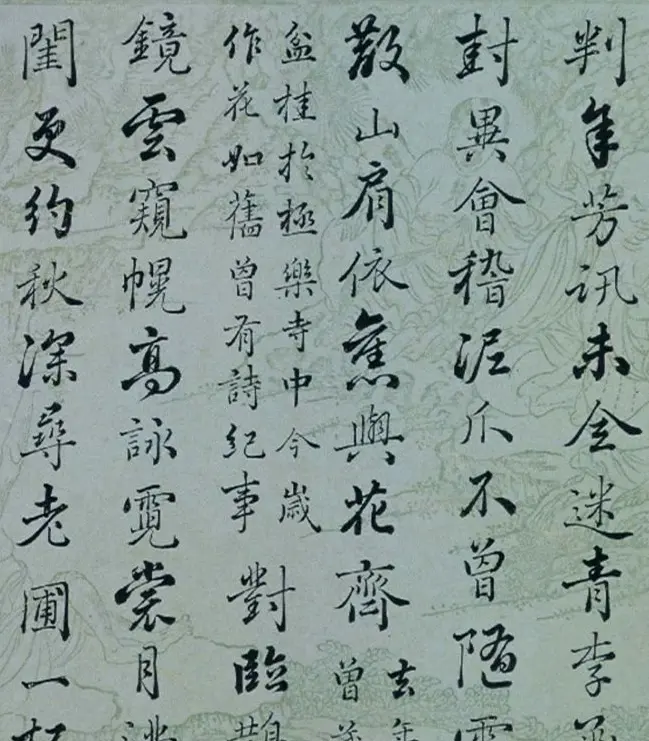 判年芳訊未全迷青李
封異會稽泥爪不曾隨
散山肩依舊與花齊
去年
曾
盆桂於極樂寺中今歲
作花如舊曾有詩紀事
對臨
鏡雲窺幌高詠霓裳月
閨更約秋深尋老圃一